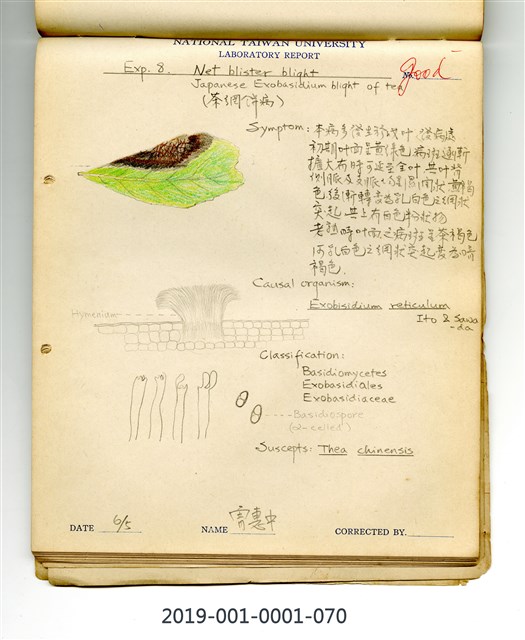 NATIONAL TAIWAN UNIVERSITY
LABORATORY REPORT
Exp. 8. Net blister blight
good
Japanese Exobasidium blight of tea
(茶網餅病)
Symptom: 本病多發生於茶叶
初期叶面呈黄綠色病斑逐漸
擴大有時可蔓至全叶 其叶背
色後漸轉變為乳白色之網狀
突起 其上有白色粉狀物
老熟時叶面之病斑呈茶褐色
而乳白色之網狀突起變為暗
褐色.
Causal organism:
Exobisidium reticulum
Ito & Sawa
-da
Hymenium
Classification:
Basidiomycetes
Exobasidiales
Exobasidiaceae
Basidiospore
(α-celled)
Suscepts: Thea chinensis
DATE 6/5 NAME CORRECTED BY.
2019-001-0001-070